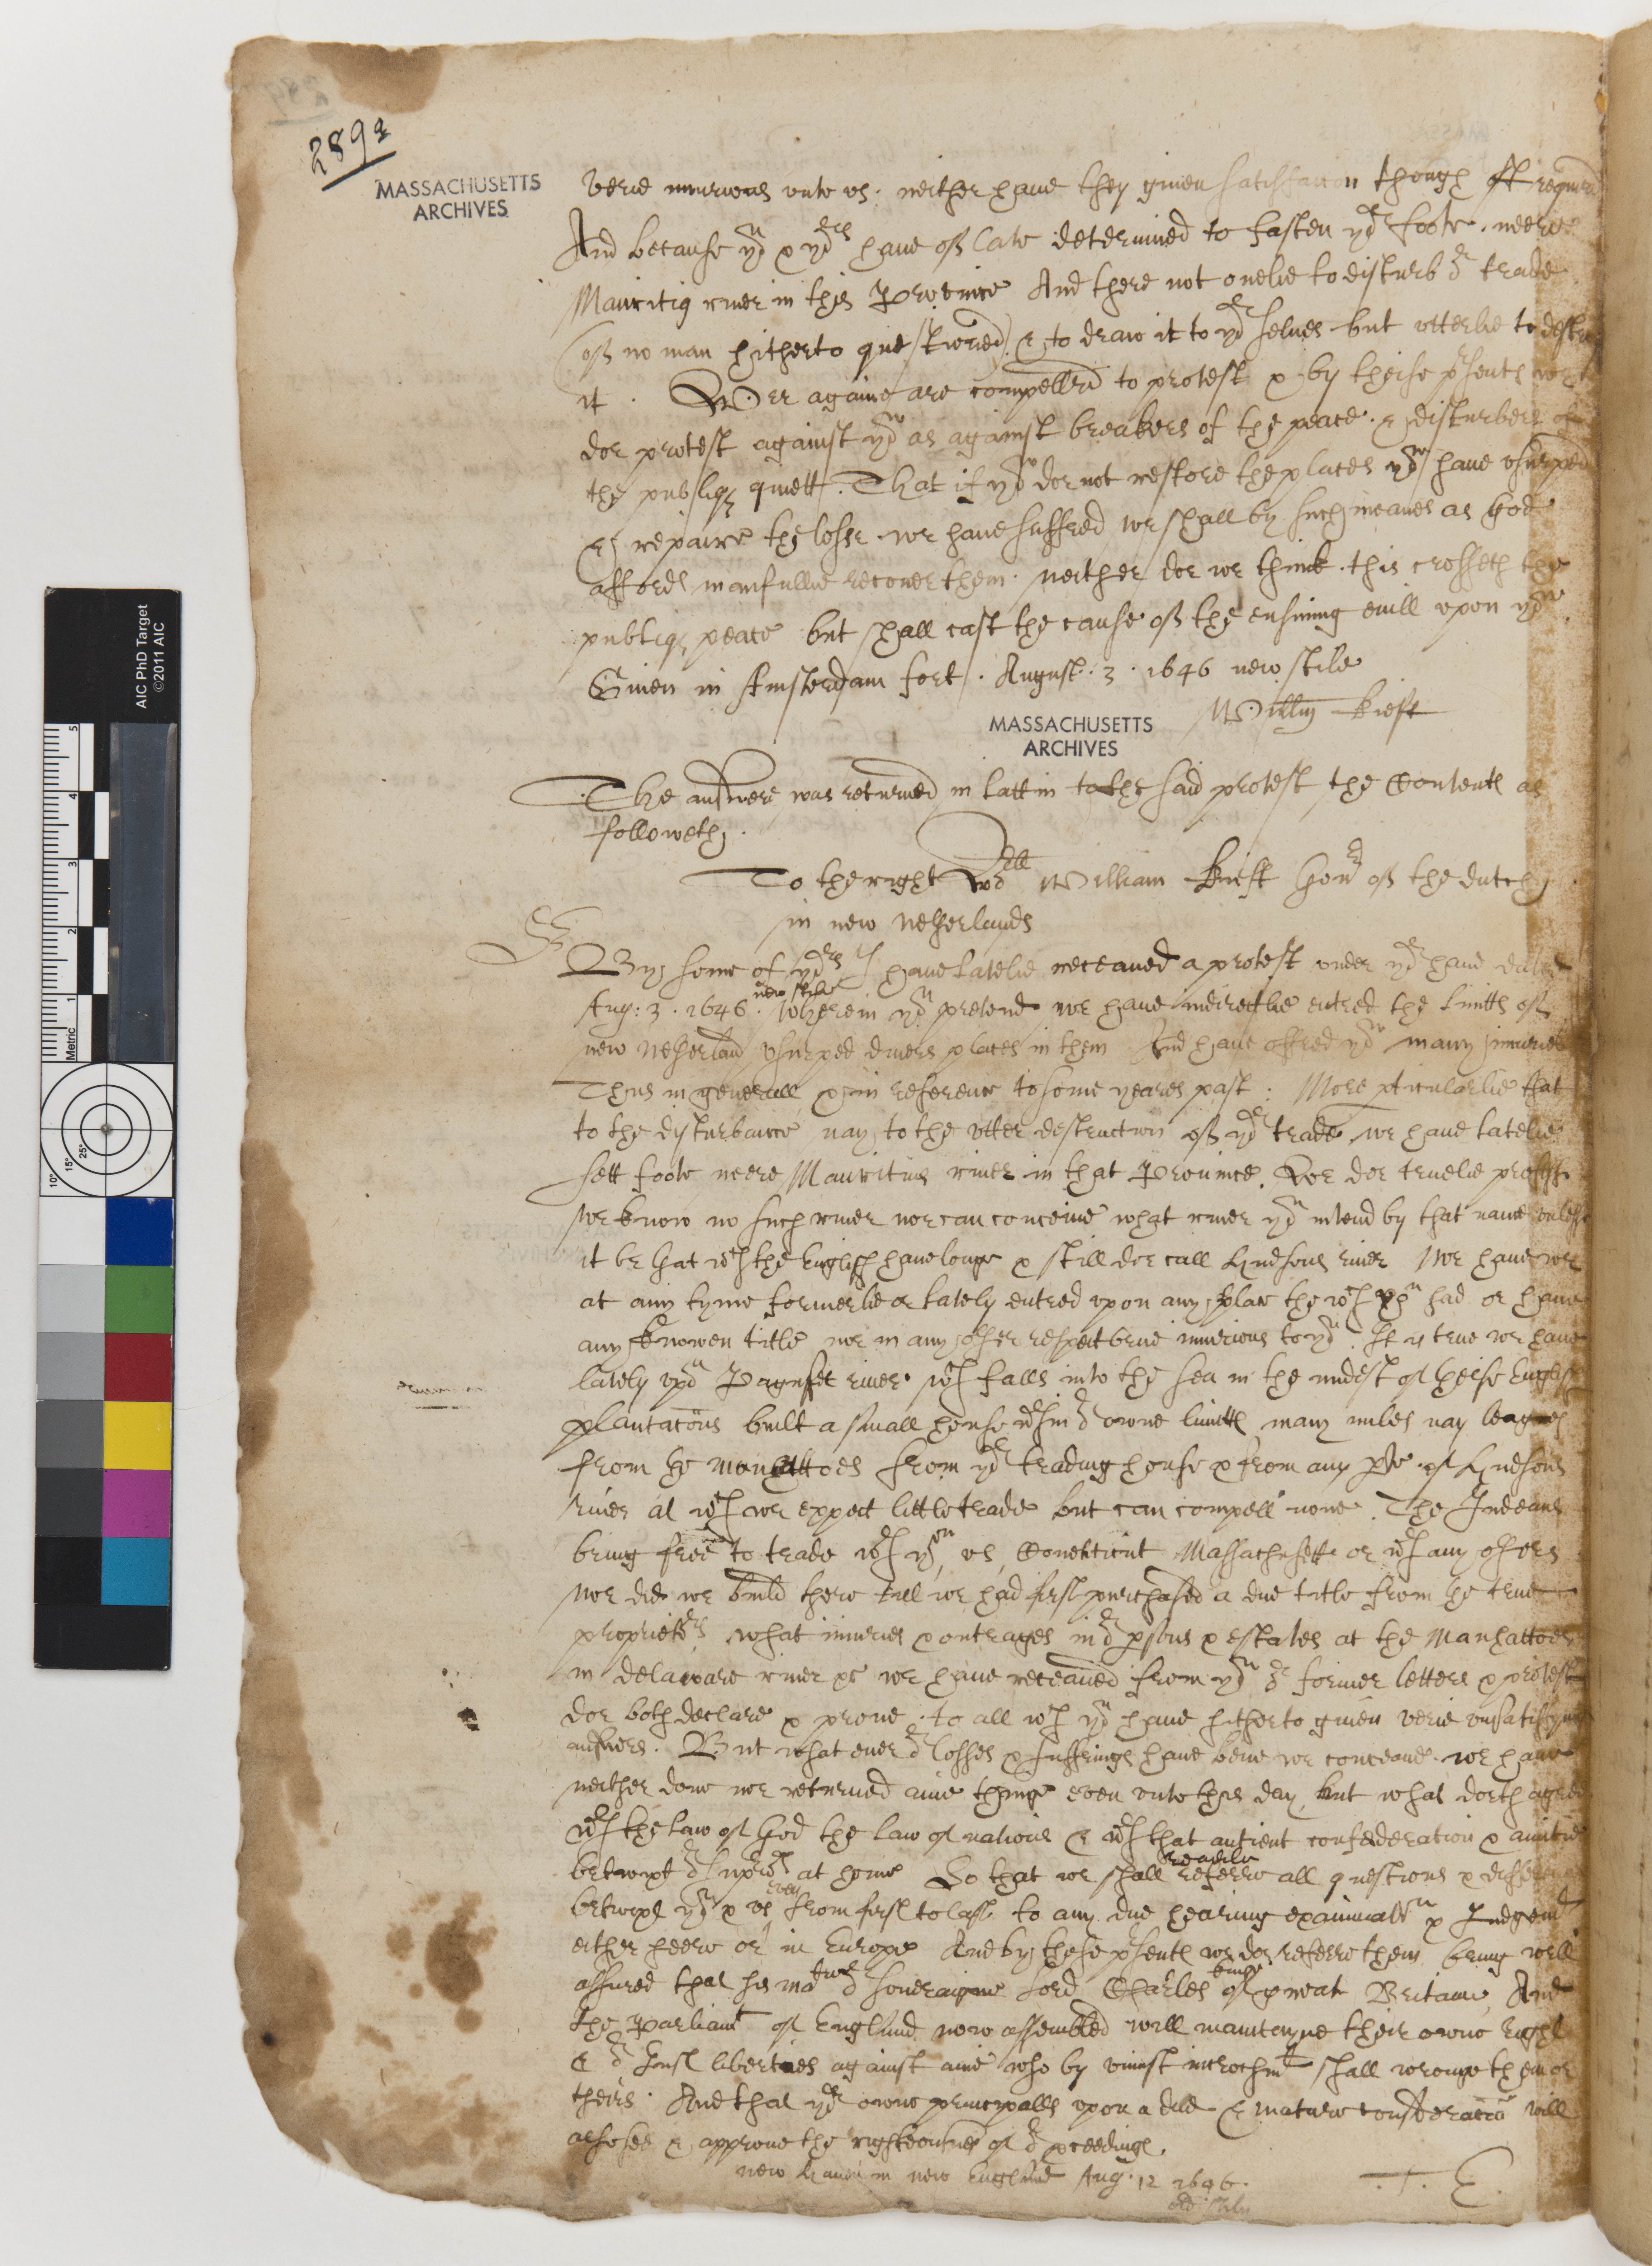 289a
MASSACHUSETTS
ARCHIVES
verie iniurious vnto vs: neither haue they giuen satisfaccon though oft required
And because yo^u & yo^rs haue of late determined to fasten yo^r foote neere
Mauritiq riuer in this Province And there not onelie to disturb o^r trade
(of no man hitherto questioned) & to draw it to yo^r selues but vtterlie to destroy
it. Wee againe are compelled to protest & by theise p^rsents
doe protest against yo^u as against breakers of the peace & disturbers of
the publiq quiett. That if yo^u doe not restore the places yo^u haue vsurped
& repaire the losse we haue suffred we shall by such meanes as God
affords manfullie recouer them. neither doe we think this crosseth the
publiq peace but shall cast the cause of the ensuing euill vpon yo^u
Giuen in Amsterdam fort. August. 3. 1646 new stile
Willm Kieft
MASSACHUSETTS
ARCHIVES
The answere was returned in lattin to the said protest the Contents as
followeth.
To the right Wor^ll William Kieft Gou^r of the dutch
in new netherlands
S^r
By some of yo^rs I haue latelie receaued a protest vnder yo^r hand dated
Aug: 3. 1646. new stile Wherein yo^u pretend we haue indirectlie entred the limitts of
new netherland vsurped diuers places in them And haue offred yo^u many iniuries
Thus in generall & in reference to some yeares past: More pticularlie that
to the disturbance nay to the vtter destruction of yo^r trade we haue latelie
sett foote neere Mauritius riuer in that Province. Wee doe truelie professe
we know no such riuer nor can conceiue what riuer yo^u intend by that name vnlesse
it be that w^ch the English haue longe & still doe call Hudsons riuer Nor haue we
at any tyme formerlie or lately entred vpon any place the w^ch yo^u had or haue
any knowen title nor in any other respect beene iniurious to yo^u. It is true we haue
lately vpo^n Paguset riuer w^ch falls into the sea in the midest of theise English
plantations built a small house w^thin o^r owne limitts many miles nay leagues
from the manhattoes from yo^r trading house & from any pte of Hudsons
riuer at w^ch we expect little trade but can compell none. The Indeans
being free to trade w^th yo^u, vs Conecticut Massachusetts or w^th any others
Nor did we build there till we had first purchased a due title from the true
propriet^rs what iniuries & outrages in o^r psons & estates at the Manhattoes
in delaware riuer &c we haue receaued from yo^u o^r former letters & protest
doe both declare & proue. to all w^ch yo^u haue hitherto giuen verie vnsatisfying
answers. But what euer o^r losses & suffrings haue beene we conceaue we haue
neither done nor returned anie thinge euen vnto this day but what doeth agree
w^th the law of God the law of nations & w^th that antient confederation & amitie
betwixt o^r super^rs at home So that we shall readilie referre all questions & differences
betwixt yo^u & vs euen from first to last to any due hearing examinat^n & Iudgem^t
either heere or in Europe And by these p^rsents we doe referre them being well
assured that his ma^tie o^r soueraigne Lord Charles kinge of great Britaine And
the Parliam^t of England now assembled will maintayne their owne right
& o^r iust liberties against anie who by vniust incrochm^t shall wronge them or
theirs. And that yo^r owne principalls vpon a due & mature consideration will
also see & approue the righteousnes of o^r pceedings.
new hauen in new England Aug. 12 1646.
old stile
T. E.